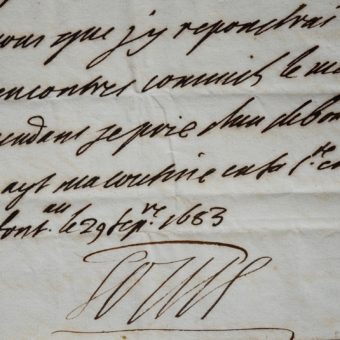 vous que j'y repondrai
rencontres comme le me
cendant je prie dieu debon
ayt ma cousine en sa s.te
font.au le 29 sep.re 1683
Louis